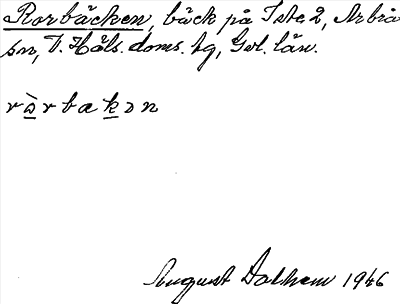 Rorbäcken, bäck på Iste 2, Arbrå
sn, V. Häls. doms. tg, Gvl. län.
ròrbakɔn
August Dalhem 1946